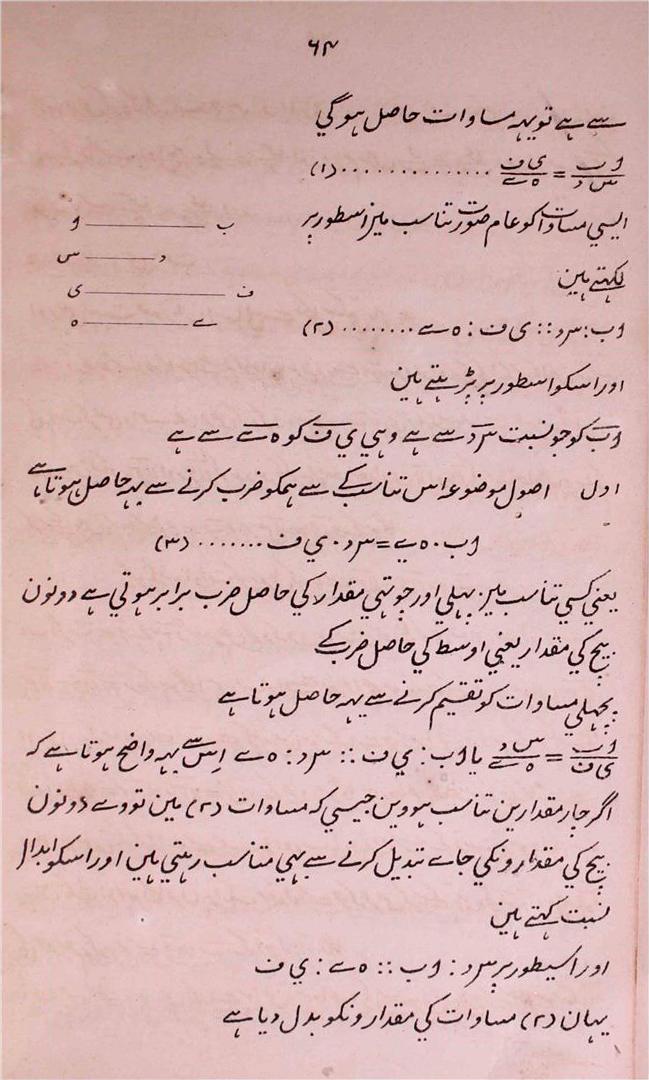 ۶۴
سے ہے تو یہہ مساوات حاصل ہوگي
اب/س د = ي ف/ہ ے ............... (۱)
ایسي مساوات کو عام صورت تناسب مین اسطور پر
ب ا
لکھتے ہین
د س
ف ي
ے ہ
اب : س د :: ي ف : ہ ے ........ (۲)
اور اسکو اسطور پر پڑہتے ہین
اب کو جو نسبت س د سے ہے وہي ي ف کو ہ ے سے ہے
اول اصول موضوعہ اس تناسب کے سے ہمکو ضرب کرنے سے یہہ حاصل ہوتا ہے
اب . ہ ے = س د . ي ف ....... (۳)
یعني کسي تناسب مین پہلي اور چوتھي مقدار کي حاصل ضرب برابر ہوتي ہے دونون
بیچ کي مقدار یعني اوسط کي حاصل ضرب کے
پچھلي مساوات کو تقسیم کرنے سے یہہ حاصل ہوتا ہے
اب/ي ف = س د/ہ ے یا اب : ي ف :: س د : ہ ے اِس سے یہہ واضح ہوتا ہے کہ
اگر چار مقدارین تناسب ہووین جیسي کہ مساوات (۲) مین تو وے دونون
بیچ کي مقدارونکي جاے تبدیل کرنے سے بھي متناسب رہتي ہین اور اسکو ابدال
نسبت کہتے ہین
اور اسیطور پر س د : اب :: ہ ے : ي ف
یہان (۲) مساوات کي مقدارونکو بدل دیا ہے